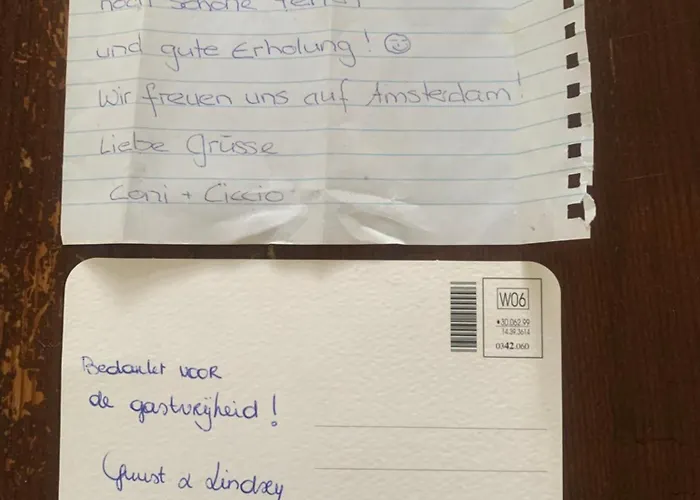 noch schöne Ferien
und gute Erholung! ☺
Wir freuen uns auf Amsterdam!
Liebe Grüsse
Coni + Ciccio
W06
30.062.99
14.39.3614
0342.060
Bedankt voor
de gastvrijheid!
Guust & Lindsey